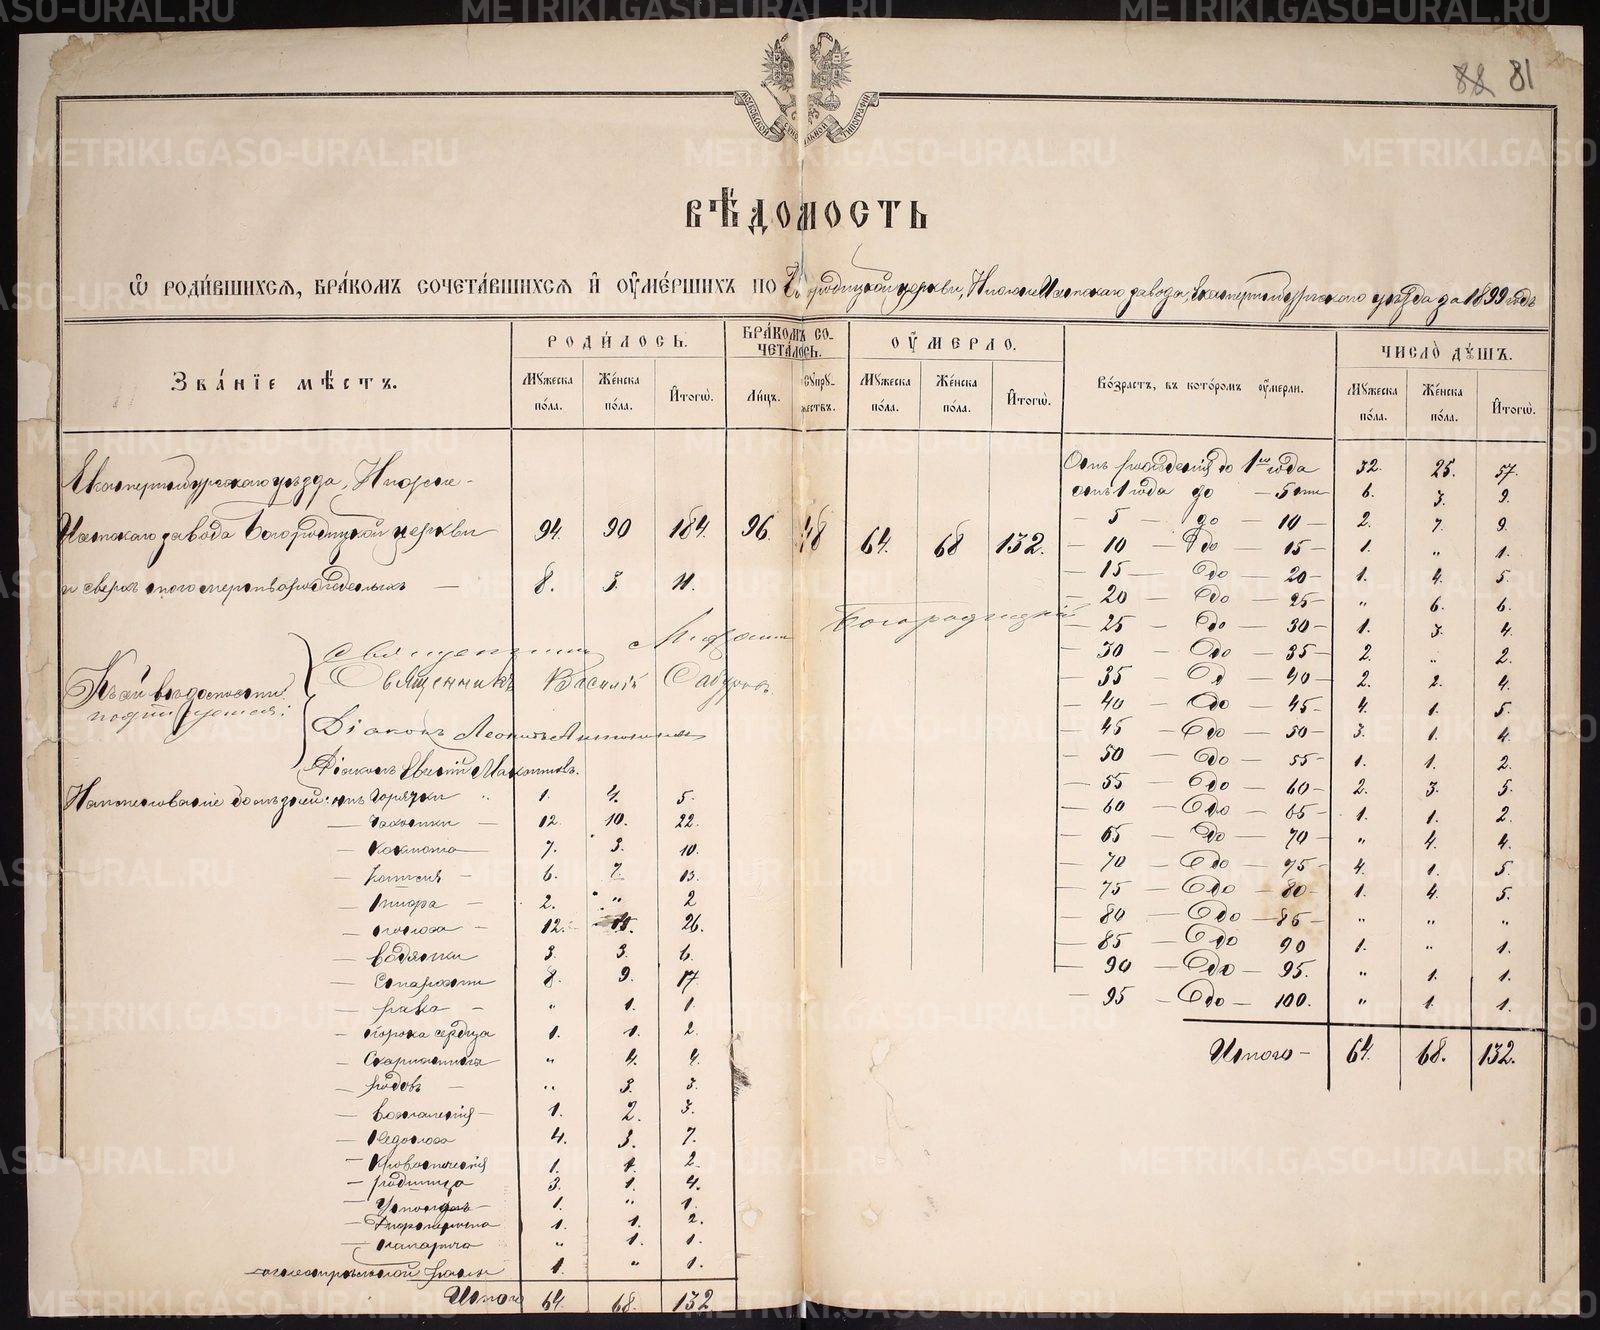 88 81
МОСКОВСКОЙ СѴНОДАЛЬНОЙ ТИПОГРАФІИ
ВѢДОМОСТЬ
Ѡ РОДИВШИХСЯ, БРАКОМЪ СОЧЕТАВШИХСЯ И ОУМЕРШИХЪ ПО Богородицкой церкви, Нижне-Исетскаго завода, Екатеринбургскаго уѣзда за 1899 годъ
ЗВАНІЕ МѢСТЪ. РОДИЛОСЬ. БРАКОМЪ СОЧЕТАЛОСЬ. ОУМЕРЛО. Возрастъ, въ которомъ оумерли. ЧИСЛО ДУШЪ.
Мужеска пола. Женска пола. Итогѡ. Лицъ. Супружествъ. Мужеска пола. Женска пола. Итогѡ. Мужеска пола. Женска пола. Итогѡ.
Екатеринбургскаго уѣзда, Нижне-
Исетскаго завода Богородицкой церкви 94. 90 184. 96. 48 64. 68 132.
и сверхъ того мертворожденныхъ — 8. 3. 11.
Къ сей вѣдомости подписуемся:
Священникъ Богородицкій
Священникъ Василій Сабуровъ
Діаконъ Леонидъ
Діаконъ Евгеній
Наименованіе болѣзней: отъ Горячки " 1. 4. 5.
— Чахотки — 12. 10. 22.
— Коклюша — 7. 3. 10.
— Кашля — 6. 7. 13.
— Тифа — 2. " 2
— Поноса — 12. 14. 26.
— Водянки 3. 3. 6.
— Старости 8. 9. 17.
— Рака — " 1. 1.
— Порока сердца 1. 1. 2.
— Скарлатина " 4. 4.
— Родовъ — " 3. 3.
— Воспаленія — 1. 2. 3.
— 4. 3. 7.
— Кровотеченія 1. 1. 2.
— Родимца 3. 1. 4.
— 1. " 1.
— Дифтерита 1. 1. 2.
— " 1. 1.
— огнестрѣльной раны 1. " 1.
Итого 64. 68. 132
Отъ рожденія до 1го года 32. 25. 57.
отъ 1 года до — 5 6. 3. 9.
— 5 — до — 10 — 2. 7. 9.
— 10 — до — 15 — 1. " 1.
— 15 — до — 20 — 1. 4. 5.
— 20 — до — 25 — " 6. 6.
— 25 — до — 30 — 1. 3. 4.
— 30 — до — 35 — 2. " 2.
— 35 — до — 40 — 2. 2. 4.
— 40 — до — 45 — 4. 1. 5.
— 45 — до — 50 — 3. 1. 4.
— 50 — до — 55 — 1. 1. 2.
— 55 — до — 60 — 2. 3. 5.
— 60 — до — 65 — 1. 1. 2.
— 65 — до — 70 — " 4. 4.
— 70 — до — 75 — 4. 1. 5.
— 75 — до — 80 — 1. 4. 5.
— 80 — до — 85 — " " "
— 85 — до 90 1. " 1.
— 90 — до — 95. " 1. 1.
— 95 — до — 100. " 1. 1.
Итого — 64. 68. 132.
METRIKI.GASO-URAL.RU